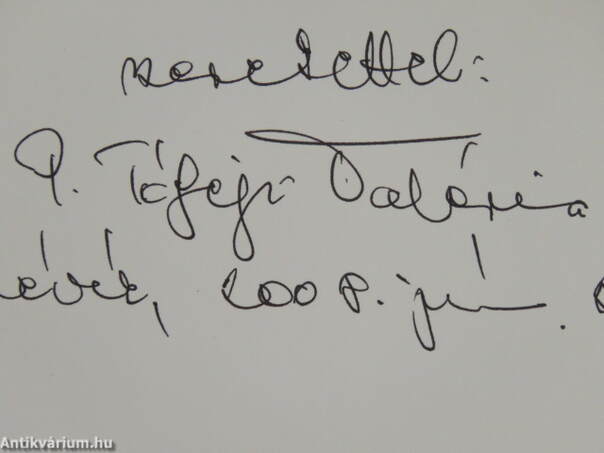 szeretettel:
P. Tófeji Valéria
2008. jún.
Antikvárium.hu